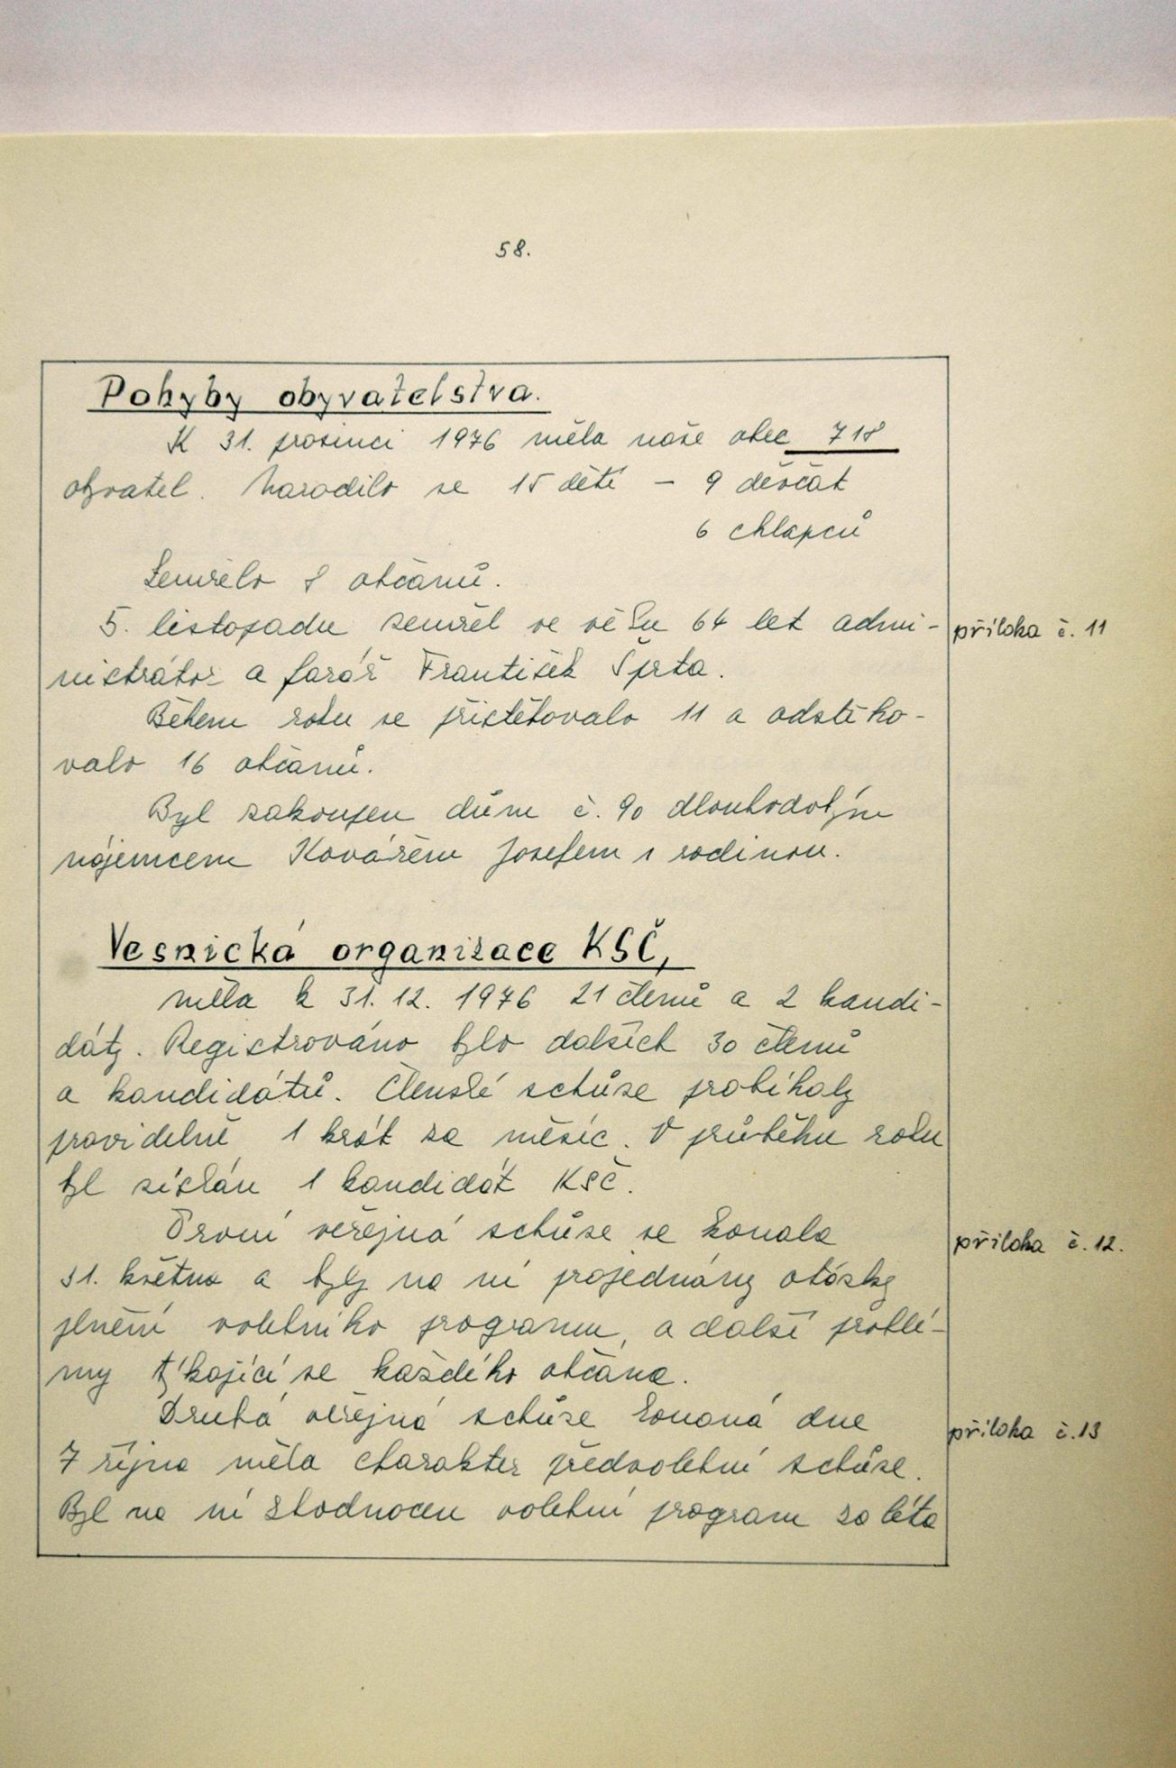 58.
Pohyby obyvatelstva.
K 31. prosinci 1976 měla naše obec 718
obyvatel. Narodilo se 15 dětí - 9 děvčat
6 chlapců
Zemřelo 8 občanů.
5. listopadu zemřel ve věku 64 let admi-
příloha č. 11
nistrátor a farář František Šprta.
Během roku se přistěhovalo 11 a odstěho-
valo 16 občanů.
Byl zakoupen dům č. 90 dlouhodobým
nájemcem Kovářem Josefem s rodinou.
Vesnická organizace KSČ,
měla k 31. 12. 1976 21 členů a 2 kandi-
dáty. Registrováno bylo dalších 30 členů
a kandidátů. Členské schůze probíhaly
pravidelně 1 krát za měsíc. V průběhu roku
byl získán 1 kandidát KSČ.
První veřejná schůze se konala
příloha č. 12.
31. května a byly na ní projednány otázky
plnění volebního programu, a další problé-
my týkající se každého občana.
Druhá veřejná schůze konaná dne
příloha č. 13
7 října měla charakter předvolební schůze.
Byl na ní zhodnocen volební program za léta